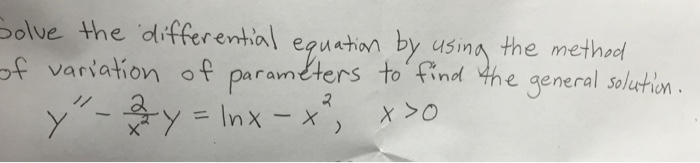 Solve the differential equation by using the method
of variation of parameters to find the general solution.
y'' - 2/x² y = ln x - x², x > 0